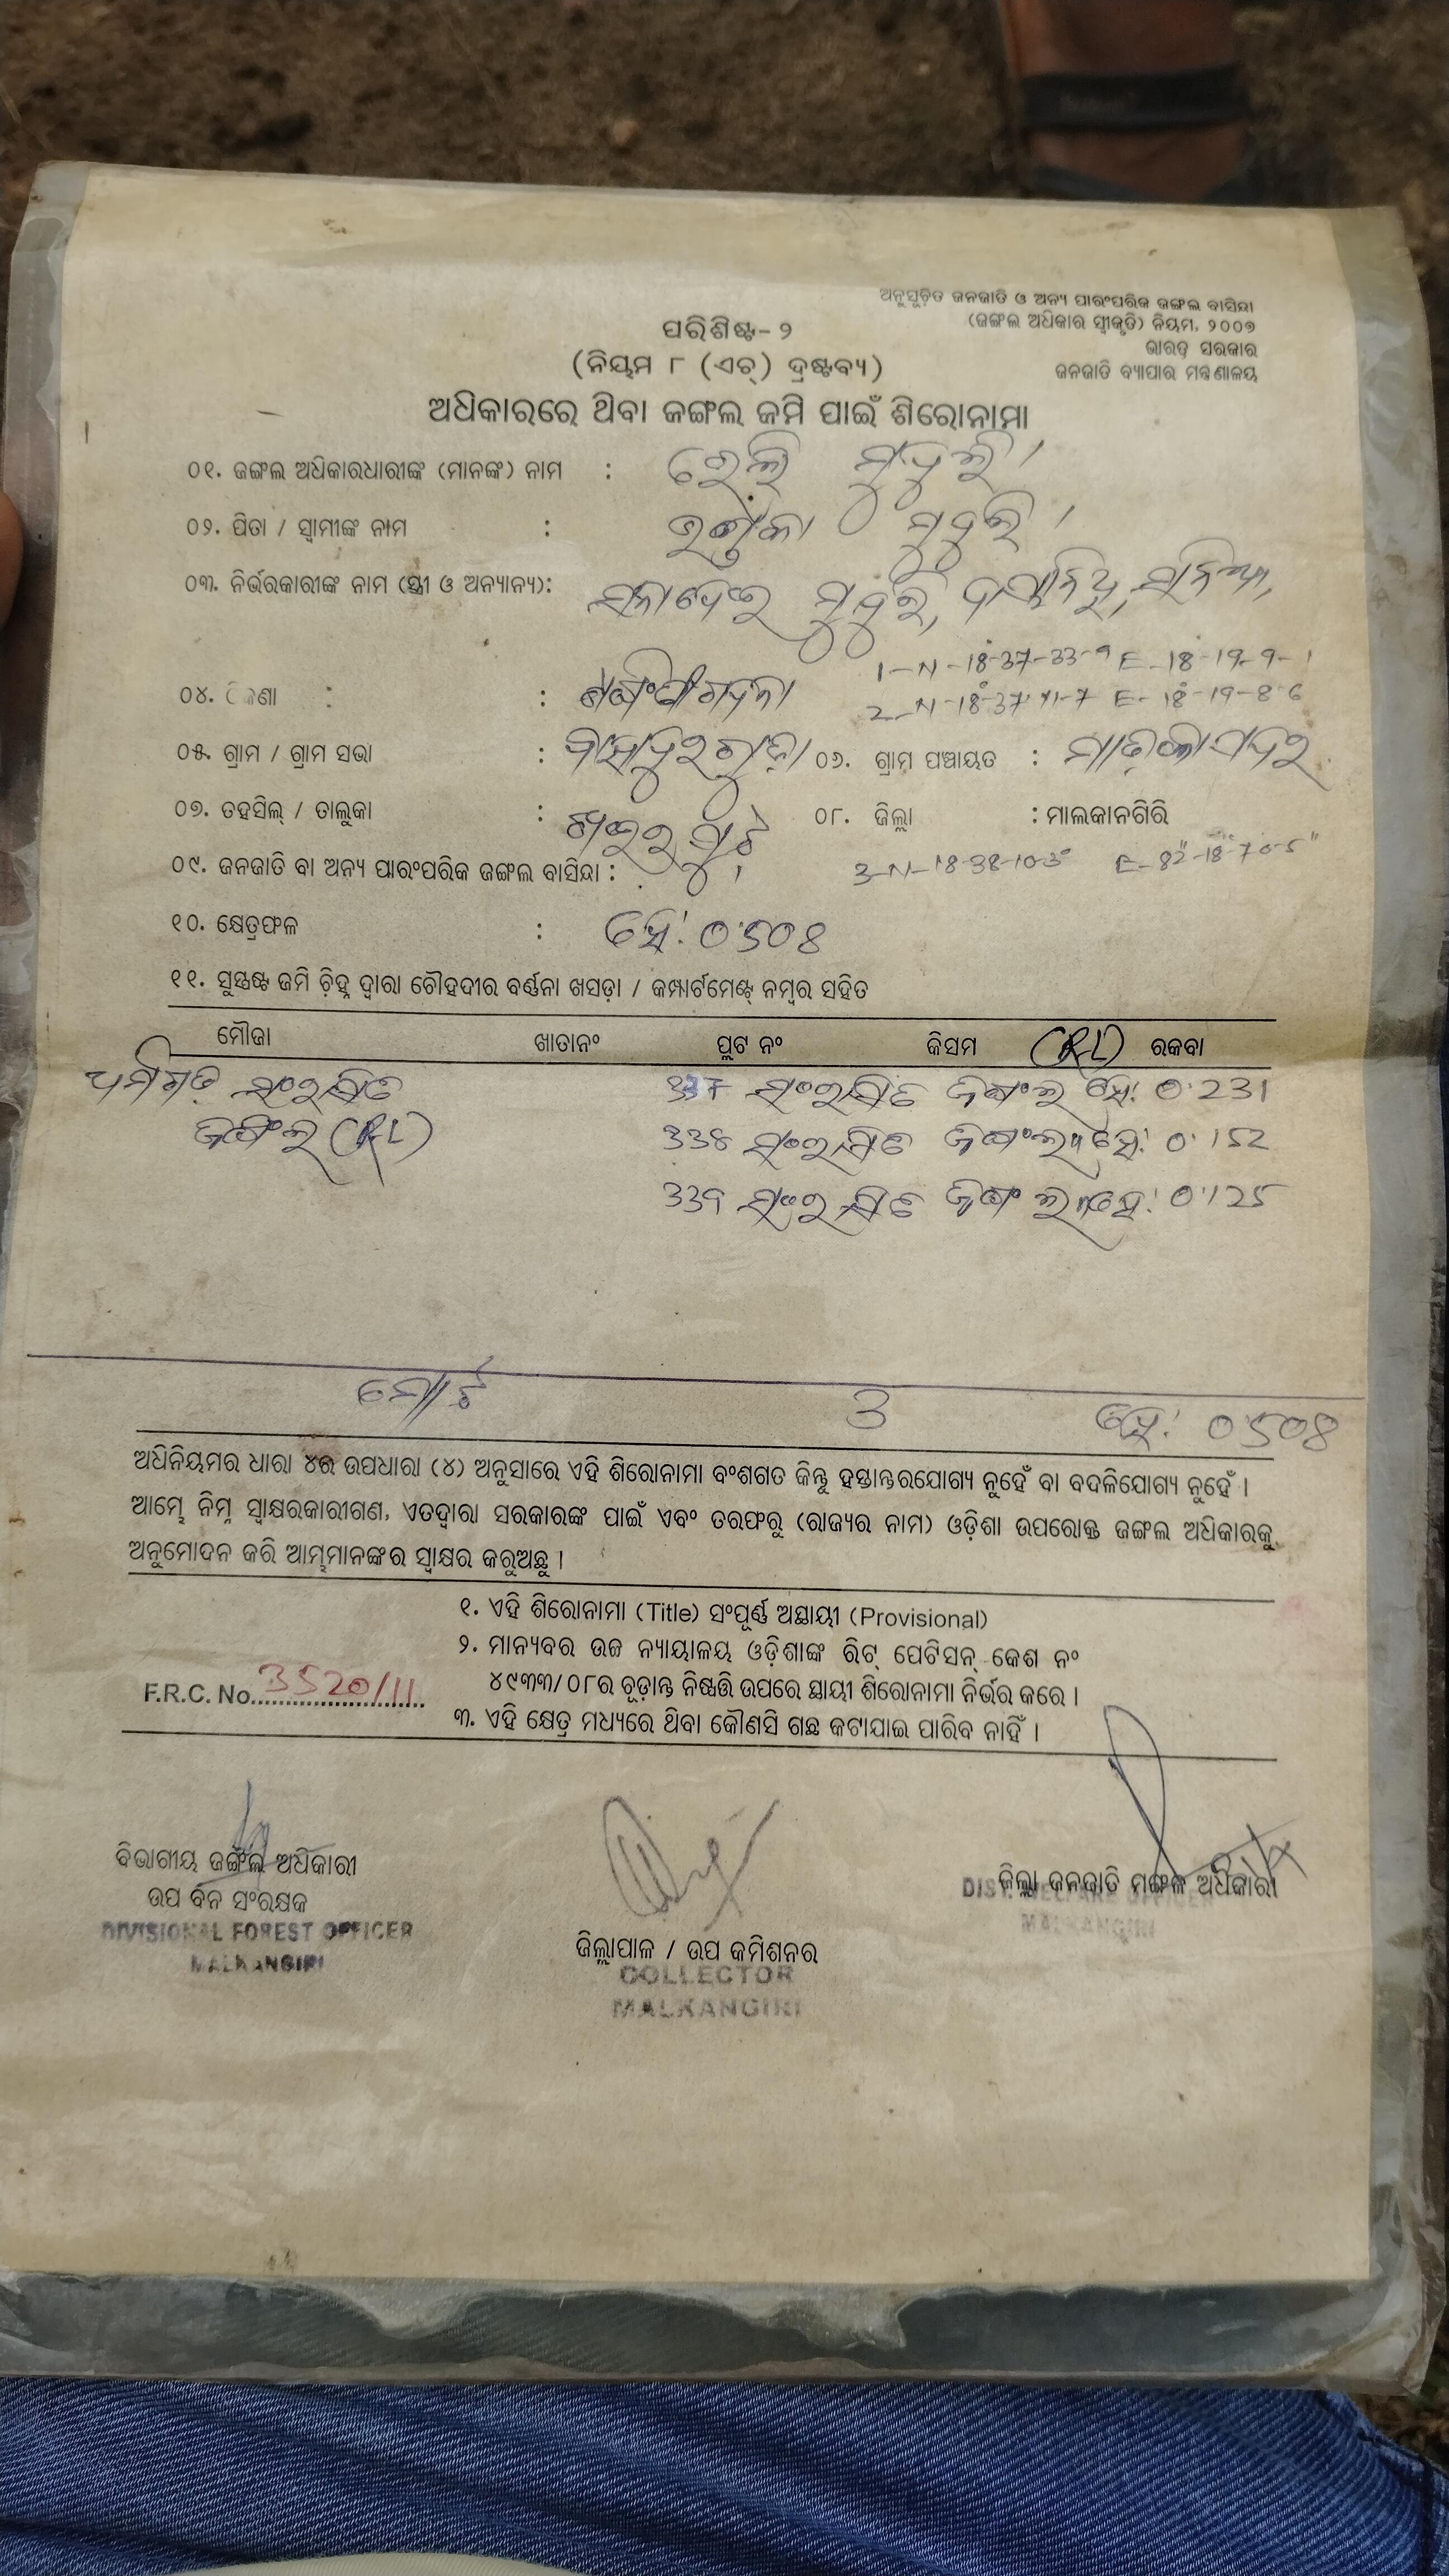 ଅନୁସୂଚିତ ଜନଜାତି ଓ ଅନ୍ୟ ପାରଂପରିକ ଜଙ୍ଗଲ ବାସିନ୍ଦା
(ଜଙ୍ଗଲ ଅଧିକାର ସ୍ୱୀକୃତି) ନିୟମ, ୨୦୦୭
ଭାରତ ସରକାର
ଜନଜାତି ବ୍ୟାପାର ମନ୍ତ୍ରଣାଳୟ
ପରିଶିଷ୍ଟ-୨
(ନିୟମ ୮ (ଏଚ୍) ଦ୍ରଷ୍ଟବ୍ୟ)
ଅଧିକାରରେ ଥିବା ଜଙ୍ଗଲ ଜମି ପାଇଁ ଶିରୋନାମା
୦୧. ଜଙ୍ଗଲ ଅଧିକାରଧାରୀଙ୍କ (ମାନଙ୍କ) ନାମ :
୦୨. ପିତା / ସ୍ୱାମୀଙ୍କ ନାମ : ମୁଦୁଲି ।
୦୩. ନିର୍ଭରକାରୀଙ୍କ ନାମ (ସ୍ତ୍ରୀ ଓ ଅନ୍ୟାନ୍ୟ):
୦୪. :
୦୫. ଗ୍ରାମ / ଗ୍ରାମ ସଭା : ୦୬. ଗ୍ରାମ ପଞ୍ଚାୟତ :
୦୭. ତହସିଲ୍ / ତାଲୁକା : ଖଇରପୁଟ ୦୮. ଜିଲ୍ଲା : ମାଲକାନଗିରି
୦୯. ଜନଜାତି ବା ଅନ୍ୟ ପାରଂପରିକ ଜଙ୍ଗଲ ବାସିନ୍ଦା :
୧୦. କ୍ଷେତ୍ରଫଳ : ହେ: 0.508
୧୧. ସୁସ୍ପଷ୍ଟ ଜମି ଚିହ୍ନ ଦ୍ୱାରା ଚୌହଦୀର ବର୍ଣ୍ଣନା ଖସଡ଼ା / କମ୍ପାର୍ଟମେଣ୍ଟ୍ ନମ୍ବର ସହିତ
ମୌଜା ଖାତାନଂ ପ୍ଲଟ ନଂ କିସମ (RL) ରକବା
ସଂରକ୍ଷିତ 337 ସଂରକ୍ଷିତ ଜଙ୍ଗଲ ହେ: 0.231
ଜଙ୍ଗଲ (RL) 338 ସଂରକ୍ଷିତ ଜଙ୍ଗଲ ହେ: 0.152
339 ସଂରକ୍ଷିତ ଜଙ୍ଗଲ ହେ: 0.125
ମୋଟ 3 ହେ: 0.508
ଅଧିନିୟମର ଧାରା ୪ର ଉପଧାରା (୪) ଅନୁସାରେ ଏହି ଶିରୋନାମା ବଂଶଗତ କିନ୍ତୁ ହସ୍ତାନ୍ତରଯୋଗ୍ୟ ନୁହେଁ ବା ବଦଳିଯୋଗ୍ୟ ନୁହେଁ ।
ଆମ୍ଭେ ନିମ୍ନ ସ୍ୱାକ୍ଷରକାରୀଗଣ, ଏତଦ୍ୱାରା ସରକାରଙ୍କ ପାଇଁ ଏବଂ ତରଫରୁ (ରାଜ୍ୟର ନାମ) ଓଡ଼ିଶା ଉପରୋକ୍ତ ଜଙ୍ଗଲ ଅଧିକାରକୁ
ଅନୁମୋଦନ କରି ଆମ୍ଭମାନଙ୍କର ସ୍ୱାକ୍ଷର କରୁଅଛୁ ।
୧. ଏହି ଶିରୋନାମା (Title) ସଂପୂର୍ଣ୍ଣ ଅସ୍ଥାୟୀ (Provisional)
୨. ମାନ୍ୟବର ଉଚ୍ଚ ନ୍ୟାୟାଳୟ ଓଡ଼ିଶାଙ୍କ ରିଟ୍ ପେଟିସନ୍ କେଶ ନଂ
୪୯୩୩/୦୮ର ଚୂଡ଼ାନ୍ତ ନିଷ୍ପତ୍ତି ଉପରେ ସ୍ଥାୟୀ ଶିରୋନାମା ନିର୍ଭର କରେ ।
F.R.C. No. 3520/11
୩. ଏହି କ୍ଷେତ୍ର ମଧ୍ୟରେ ଥିବା କୌଣସି ଗଛ କଟାଯାଇ ପାରିବ ନାହିଁ ।
ବିଭାଗୀୟ ଜଙ୍ଗଲ ଅଧିକାରୀ
ଉପ ବନ ସଂରକ୍ଷକ
DIVISIONAL FOREST OFFICER
MALKANGIRI
ଜିଲ୍ଲାପାଳ / ଉପ କମିଶନର
COLLECTOR
MALKANGIRI
ଜିଲ୍ଲା ଜନଜାତି ମଙ୍ଗଳ ଅଧିକାରୀ
DIST. WELFARE OFFICER
MALKANGIRI